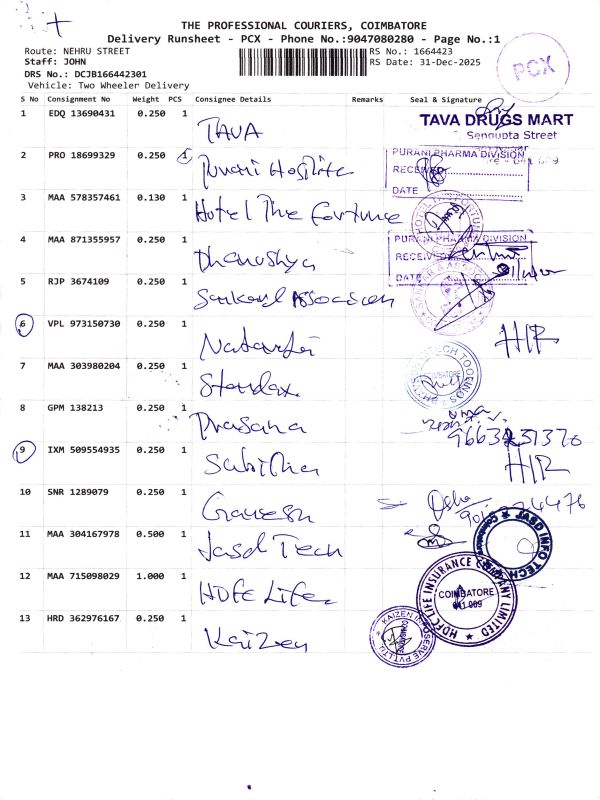 THE PROFESSIONAL COURIERS, COIMBATORE
Delivery Runsheet - PCX - Phone No.:9047080280 - Page No.:1
Route: NEHRU STREET
RS No.: 1664423
Staff: JOHN
RS Date: 31-Dec-2025
DRS No.: DCJB166442301
Vehicle: Two Wheeler Delivery
PCX
S No Consignment No Weight PCS Consignee Details Remarks Seal & Signature
1 EDQ 13690431 0.250 1 TAVA
TAVA DRUGS MART
Sengupta Street
2 PRO 18699329 0.250 1
PURANI PHARMA DIVISION
RECEIVED
DATE
3 MAA 578357461 0.130 1 Hotel The Fortune
4 MAA 871355957 0.250 1 Dhanushya
PURANI PHARMA DIVISION
RECEIVED
DATE
5 RJP 3674109 0.250 1
6 VPL 973150730 0.250 1 Nataraj
H/R
7 MAA 303980204 0.250 1
8 GPM 138213 0.250 1 Prasana
9 IXM 509554935 0.250 1
H/R
10 SNR 1289079 0.250 1 Ganesh
Usha
11 MAA 304167978 0.500 1 Jasd Tech
JASD INFO TECH
Coimbatore
12 MAA 715098029 1.000 1 HDFC Life
HDFC LIFE INSURANCE COMPANY LIMITED
COIMBATORE
641 009
13 HRD 362976167 0.250 1 Kaizen
KAIZEN INFOSERVE PVT LTD